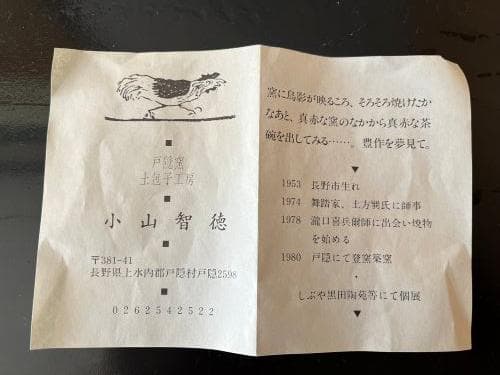 ■
戸隠窯
土包子工房
■
小山智徳
■
■
〒381-41
長野県上水内郡戸隠村戸隠2598
■
0262542522
窯に鳥影が映るころ、そろそろ焼けたか
なあと、真赤な窯のなかから真赤な茶
碗を出してみる……。豊作を夢見て。
▼
1953 長野市生れ
1974 舞踏家、土方巽氏に師事
1978 瀧口喜兵爾師に出会い焼物
を始める
1980 戸隠にて登窯築窯
・
しぶや黒田陶苑等にて個展
▼